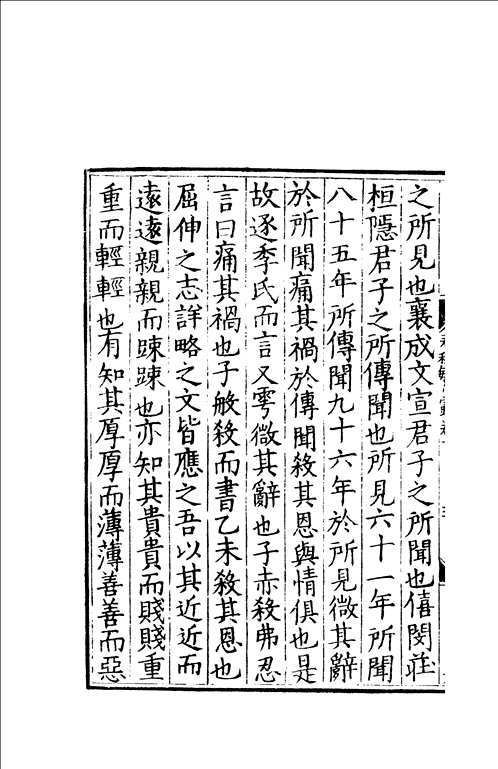 之所見也襄成文宣君子之所聞也僖閔莊
桓隱君子之所傳聞也所見六十一年所聞
八十五年所傳聞九十六年於所見微其辭
於所聞痛其禍於傳聞殺其恩與情俱也是
故逐季氏而言又雩微其辭也子赤殺弗忍
言曰痛其禍也子般殺而書乙未殺其恩也
屈伸之志詳略之文皆應之吾以其近近而
遠遠親親而踈踈也亦知其貴貴而賤賤重
重而輕輕也有知其厚厚而薄薄善善而惡